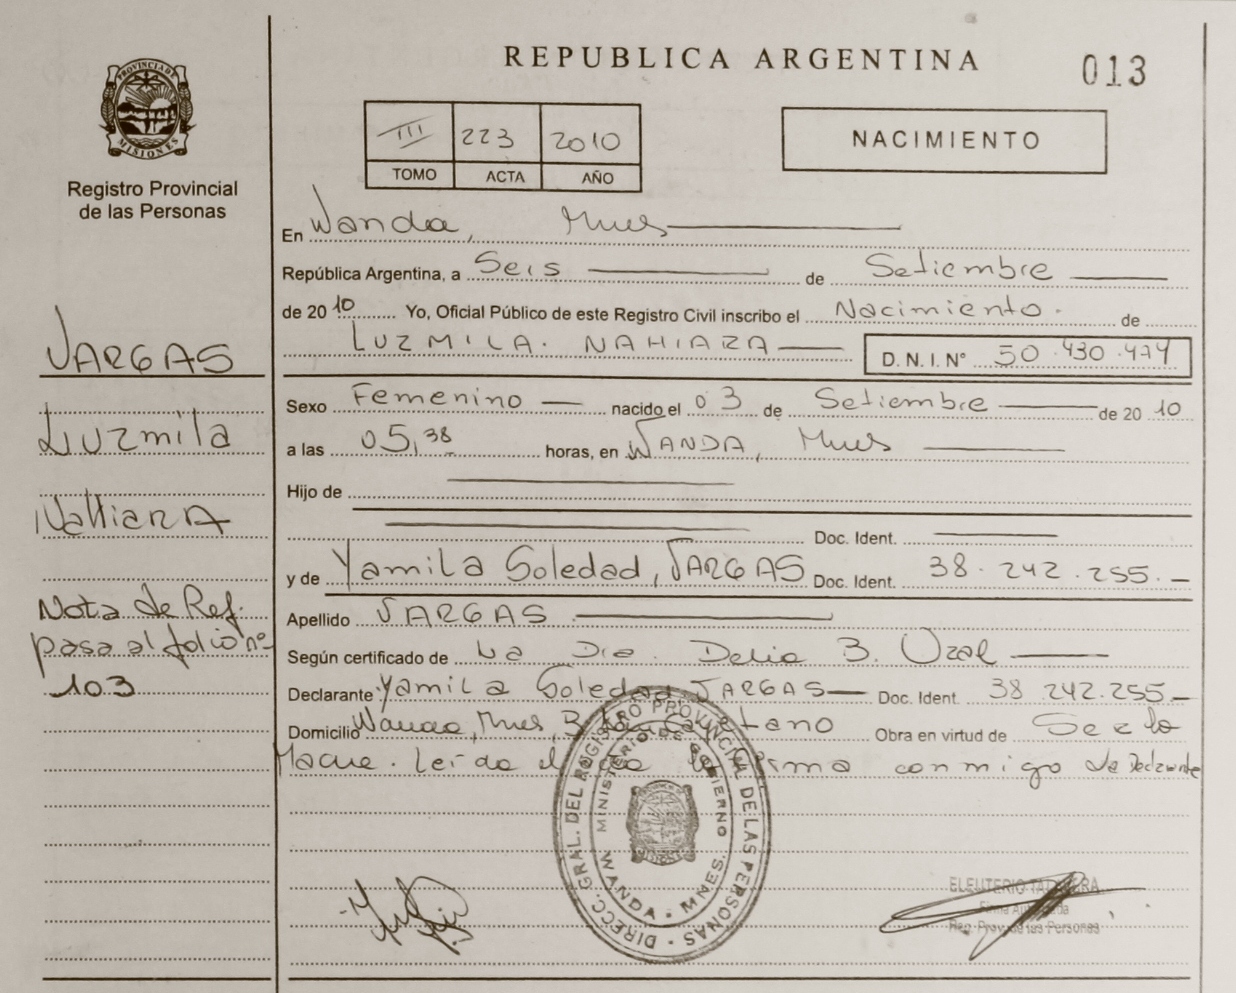 REPUBLICA ARGENTINA
013
PROVINCIA DE MISIONES
Registro Provincial
de las Personas
III 223 2010
TOMO ACTA AÑO
NACIMIENTO
En Wanda, Mnes
República Argentina, a Seis de Setiembre
de 2010 Yo, Oficial Público de este Registro Civil inscribo el Nacimiento. de
LUZMILA. NAHIARA D. N. I. Nº 50.430.474
VARGAS
Luzmila
NaHiARA
Nota de Ref.
pasa al folio nº
103
Sexo Femenino nacido el 03 de Setiembre de 2010
a las 05,38 horas, en WANDA, Mnes
Hijo de
Doc. Ident.
y de Yamila Soledad, VARGAS Doc. Ident. 38.242.255.
Apellido VARGAS
Según certificado de La Dra. Delia B. Uzal
Declarante Yamila Soledad VARGAS Doc. Ident. 38 242.255
Domicilio Wanda, Mnes, Obra en virtud de Ser la
Madre. Leída el acta la firma conmigo la Declarante
DIRECC. GRAL. DEL REGISTRO PROVINCIAL DE LAS PERSONAS
MINISTERIO DE GOBIERNO
WANDA - MNES.
ELEUTERIO
Reg. Prov. de las Personas